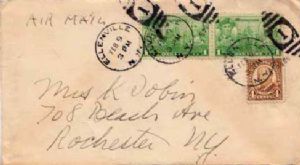 AIR MAIL
ELLENVILLE
FEB 9
3 PM
N.Y.
Miss K Dobin
708 Beach Ave
Rochester NY.